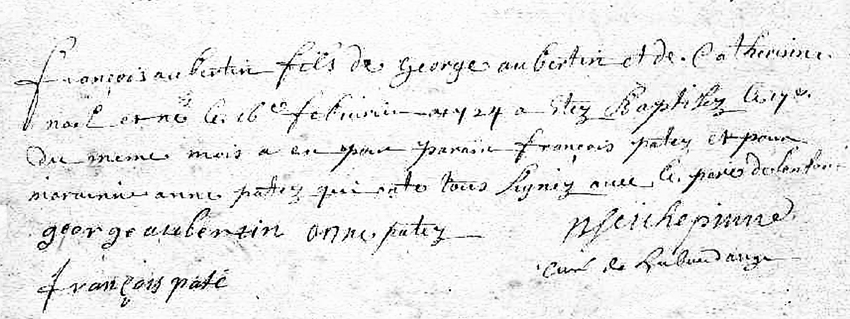 françois aubertin fils de george aubertin et de Catherinne
noel et né le 16e febvrier 1724 a etez Baptisez le 17e
du meme mois a eu pour parain françois patez et pour
maraine anne patez qui ont tous signez avec le pere de lenfan
george aubertin anne patez
françois paté curé de